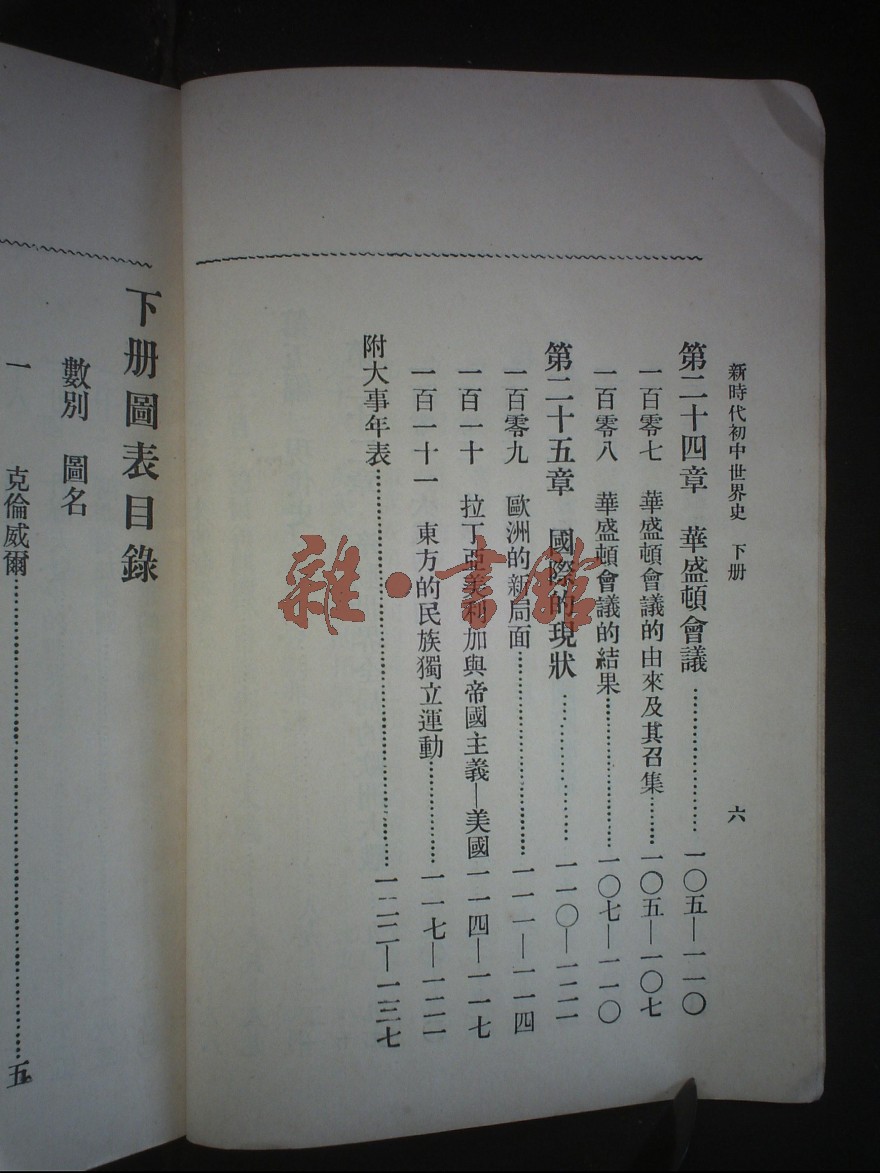 新時代初中世界史　下册
六
第二十四章　華盛頓會議…………一〇五—一一〇
一百零七　華盛頓會議的由來及其召集……一〇五—一〇七
一百零八　華盛頓會議的結果…………一〇七—一一〇
第二十五章　國際的現狀…………一一〇—一二一
一百零九　歐洲的新局面…………一一一—一一四
一百一十　拉丁亞美利加與帝國主義—美國　一一四—一一七
一百一十一　東方的民族獨立運動…………一一七—一二一
附大事年表…………一二二—一三七
下册圖表目錄
數別　圖名
一　克倫威爾…………五
雜·書館